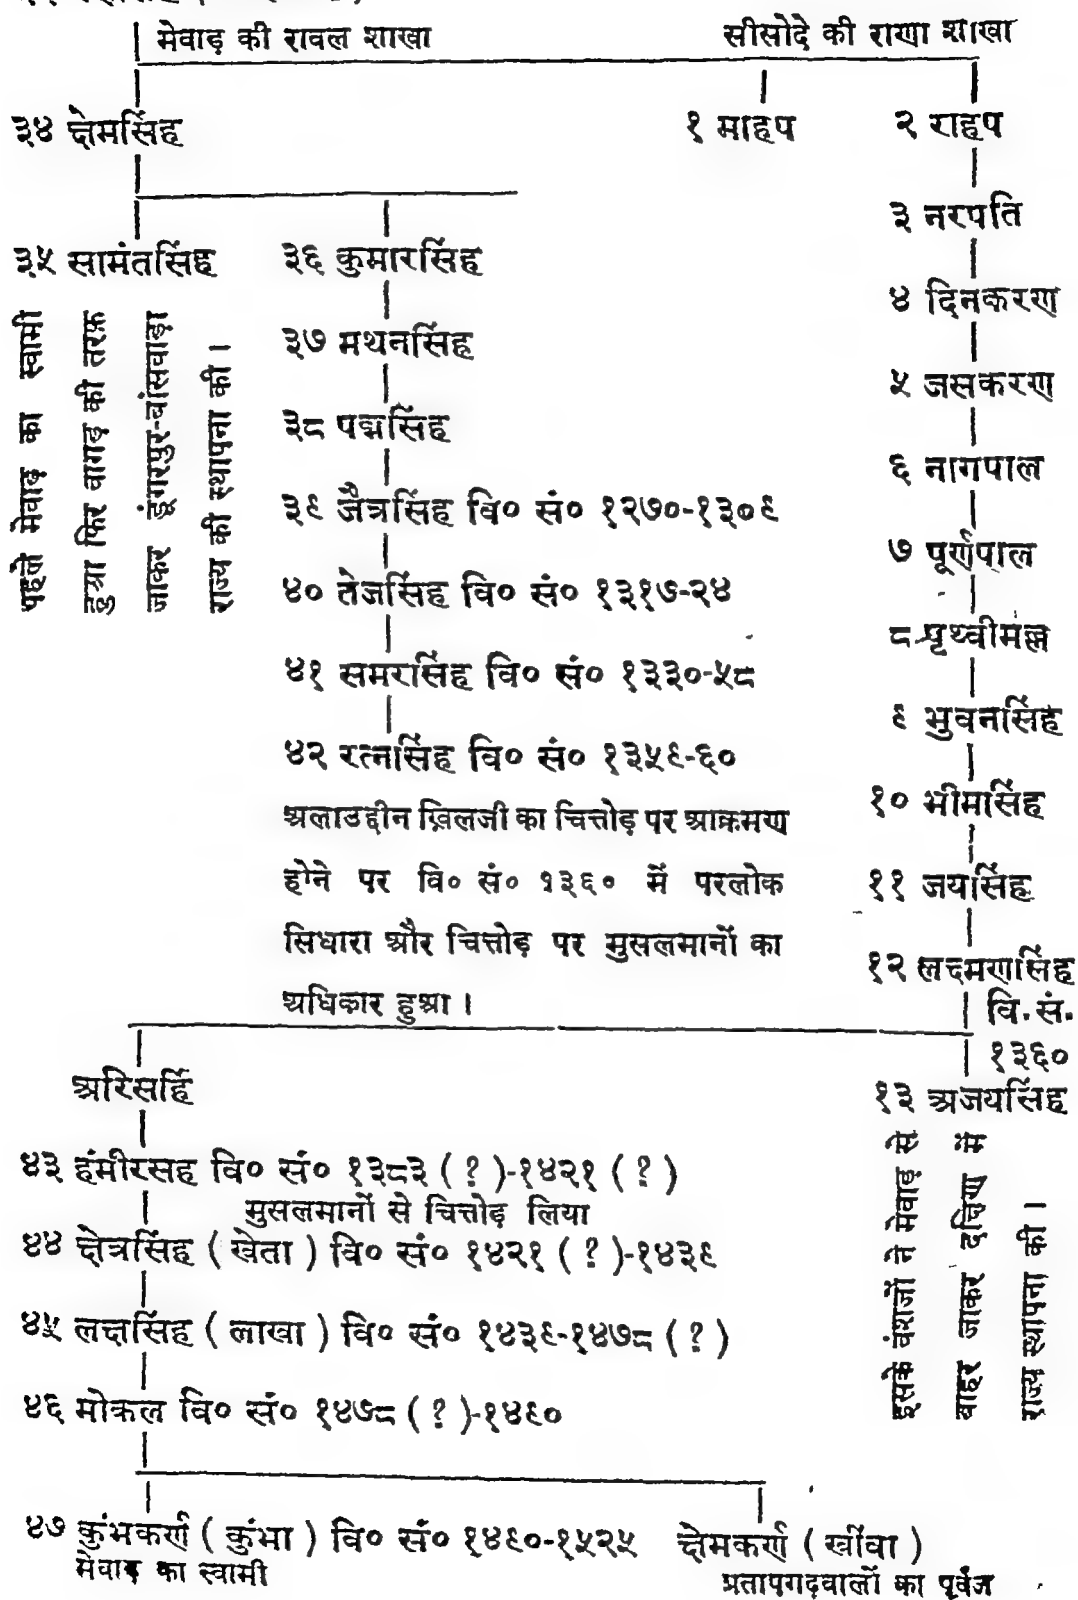 मेवाड़ की रावल शाखा
सीसोदे की राणा शाखा
३४ क्षेमसिंह
१ माहप
२ राहप
३ नरपति
३५ सामंतसिंह
पहले मेवाड़ का स्वामी
हुआ फिर वागड़ की तरफ़
जाकर डूंगरपुर-बांसवाड़ा
राज्य की स्थापना की ।
३६ कुमारसिंह
३७ मथनसिंह
३८ पद्मसिंह
३९ जैत्रसिंह वि० सं० १२७०-१३०९
४० तेजसिंह वि० सं० १३१७-२४
४१ समरसिंह वि० सं० १३३०-५८
४२ रत्नसिंह वि० सं० १३५९-६०
अलाउद्दीन ख़िलजी का चित्तोड़ पर आक्रमण
होने पर वि० सं० १३६० में परलोक
सिधारा और चित्तोड़ पर मुसलमानों का
अधिकार हुआ ।
४ दिनकरण
५ जसकरण
६ नागपाल
७ पूर्णपाल
८ पृथ्वीमल्ल
९ भुवनसिंह
१० भीमसिंह
११ जयसिंह
१२ लक्ष्मणसिंह
वि. सं.
१३६०
अरिसर्हि
१३ अजयसिंह
इसके वंशजों ने मेवाड़ से
बाहर जाकर दक्षिण में
राज्य स्थापना की ।
४३ हंमीरसह वि० सं० १३८३ ( ? )-१४२१ ( ? )
मुसलमानों से चित्तोड़ लिया
४४ क्षेत्रसिंह ( खेता ) वि० सं० १४२१ ( ? )-१४३९
४५ लक्षसिंह ( लाखा ) वि० सं० १४३९-१४७८ ( ? )
४६ मोकल वि० सं० १४७८ ( ? )-१४९०
४७ कुंभकर्ण ( कुंभा ) वि० सं० १४९०-१५२५
मेवाड़ का स्वामी
क्षेमकर्ण ( खींवा )
प्रतापगढ़वालों का पूर्वज